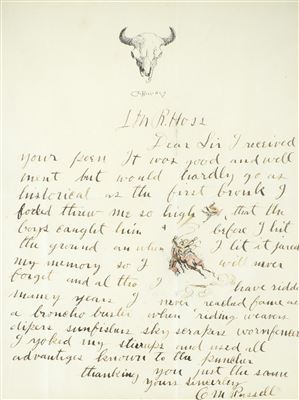 Dear Sir I received
your poem It was good and well
ment but would hardly go as
historical as the first bronk I
forked threw me so high that the
boys caught him before I hit
the ground an when I lit it jared
my memory so I will never
forget and al tho I have ridd
maney years I never reached fame as
a broncho buster when riding weavers
sunfishers sky scrapers wormfences
I yoked my stirups and used all
advantages known to the puncher
thanking you just the same
yours sincerley
C M Russell